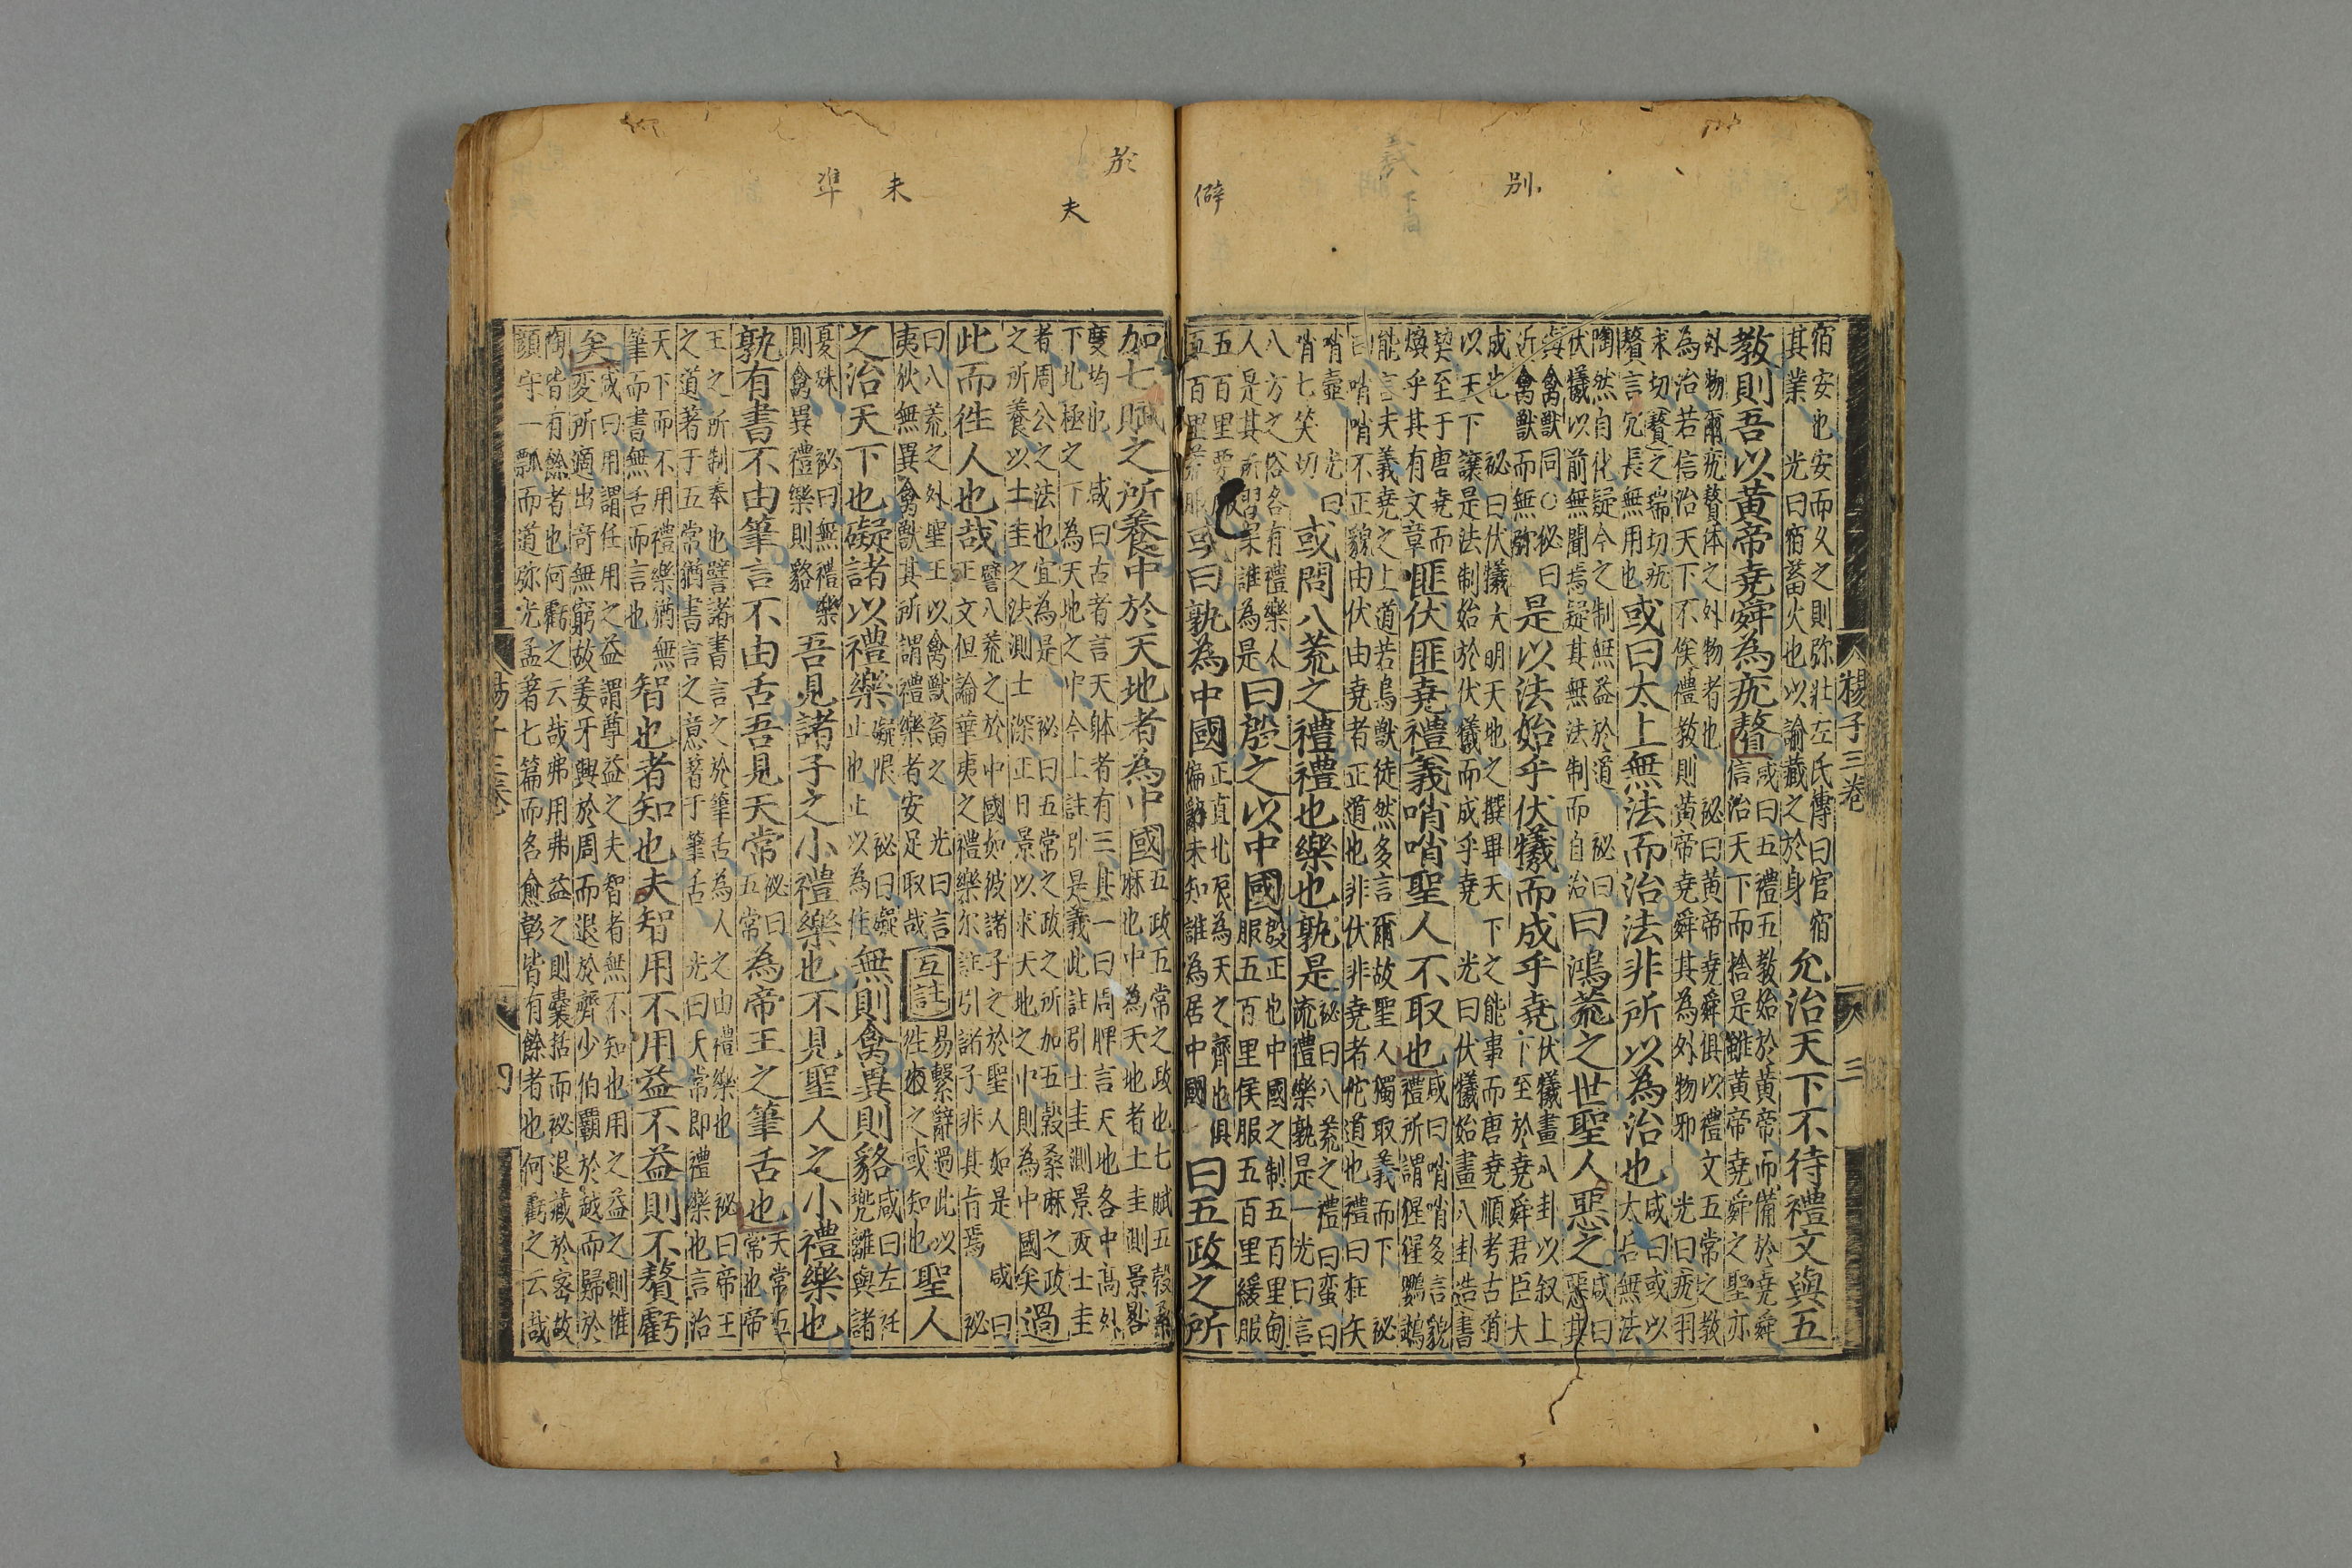 於
夫
未
準
僻
別
揚子三卷 三
宿安也安而久之則弥壯左氏傳曰官宿
其業 光曰宿蓄火也以諭藏之於身
允治天下不待禮文與五
教則吾以黃帝堯舜為疣贅
咸曰五禮五教始於黃帝而備於堯舜
信治天下而捨是雖黃帝堯舜之聖亦
外物爾疣贅体之外物者也 祕曰黃帝堯舜俱以禮文五常之教
為治若信治天下不俟禮教則黃帝堯舜其為外物邪 光曰疣羽
求切贅之瑞切疣
贅言冗長無用也
或曰太上無法而治法非所以為治也
咸曰或以
太古無法
陶然自化疑今之制無益於道 祕曰
伏犧以前無聞焉疑其無法制而自治
曰鴻荒之世聖人惡之
咸曰
惡其
與禽獸同○祕曰
近禽獸而無辨
是以法始乎伏犧而成乎堯
伏犧畫八卦以叙上
下至於堯舜君臣大
成也 祕曰伏犧大明天地之撰畢天下之能事而唐堯順考古道
以天下讓是法制始於伏犧而成乎堯 光曰伏犧始畫八卦造書
契至于唐堯而
煥乎其有文章
匪伏匪堯禮義哨哨聖人不取也
咸曰哨哨多言貌
禮所謂猩猩鸚鵡
能言夫義堯之上道若鳥獸徒然多言爾故聖人獨取義而下 祕
曰哨哨不正貌由伏由堯者正道也非伏非堯者佗道也禮曰枉矢
哨壺 光曰
哨七笑切
或問八荒之禮禮也樂也孰是
祕曰八荒之禮曰蛮曰
流禮樂孰是一 光曰言
八方之俗各有禮樂人
人是其所習果誰為是
曰殷之以中國
殷正也中國之制五百里甸
服五百里侯服五百里綏服
五百里要服
五百里荒服
或曰孰為中國
正直北辰為天之齊也俱
偏僻未知誰為居中國
曰五政之所
加七賦之所養中於天地者為中國
五政五常之政也七賦五穀桑
麻也中為天地者土圭測景晷
雙均也 咸曰古者言天躰者有三其一曰周髀言天地各中高外
下北極之下為天地之中今上註引是義此註引土圭測景灾土圭
者周公之法也宜為是 祕曰五常之政之所加五穀桑麻之政
之所養以土圭之法測土深正日景以求天地之中則為中國矣
過
此而往人也哉
譬八荒之於中國如彼諸子之於聖人如是 咸曰
正文但論華夷之禮樂尔註引諸子非其旨焉 祕
曰八荒之外聖王以禽獸畜之 光曰言
夷狄無異禽獸其所謂禮樂者安足取哉
互註
易繫辭過此以
徃之或知也
聖人
之治天下也礙諸以禮樂
礙限 祕曰礙
止也止以為住
無則禽異則貉
咸曰左衽
雖與諸
夏殊 祕曰無禮樂
則禽異禮樂則貉
吾見諸子之小禮樂也不見聖人之小禮樂也
孰有書不由筆言不由舌吾見天常
祕曰
五常
為帝王之筆舌也
天常五
常也帝
王之所制奉也譬諸書言之於筆舌為人之由禮樂也 祕曰帝王
之道著于五常猶書言之意著于筆舌 光曰天常即禮樂也言治
天下而不用禮樂猶無
筆而書無舌而言也
智也者知也夫智用不用益不益則不贅虧
矣
咸曰用謂任用之益謂尊益之夫智者無不知也用之益之則惟
変所適出奇無窮故姜牙興於周而退於齊少伯霸於越而歸於
陶皆有餘者也何虧之云哉弗用弗益之則囊括而祕退藏於密故
顏守一瓢而道弥光孟著七篇而名愈彰皆有餘者也何虧之云哉